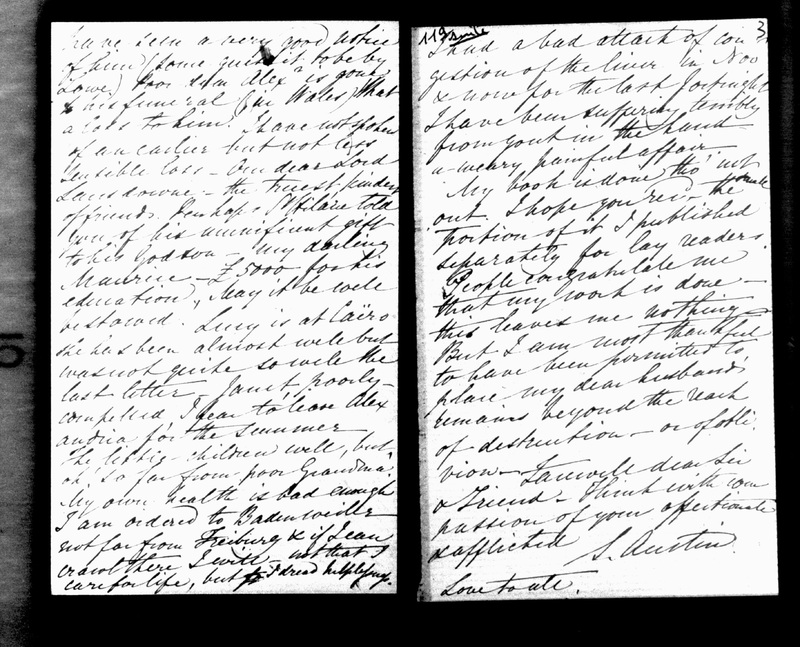 have seen a very good notice
of him (some guess it to be by
Lowe) Poor dear Alexr is gone
& his funeral (in Wales) that
a loss to him. I have not spoken
of an earlier but not less
sensible loss - Our dear Lord
Lansdowne - the truest kindest
of friends. Perhaps St Hilaire told
you of his munificent gift
to his Godson - my darling
Maurice - £5000 for his
education, May it be well
bestowed. Lucy is at Caïro
she has been almost well but
was not quite so well the
last letter, Janet, poorly -
compelled I fear to leave Alex
andria for the summer
The little children well, but
oh, so far from poor Grandma!
My own health is bad enough
I am ordered to Badenweiler
not far from Freiburg & if I can
crawl there I will not that I
care for life, but I dread helplessness.
119 suite
3
I had a bad attack of con
gestion of the liver in Nov
& now for the last fortnight
I have been suffering terribly
from gout in the hand -
a weary painful affair -
My book is done tho' not
out. I hope you recd the small
portion of it I published
separately for lay readers.
People congratulate me
that my work is done -
this leaves me nothing
But I am most thankful
to have been permitted to
place my dear husband's
remains beyond the reach
of destruction - or of obli
vion - Farewell dear Sir
& Friend - Think with com
passion of your affectionate
& afflicted S. Austin
Love to all.